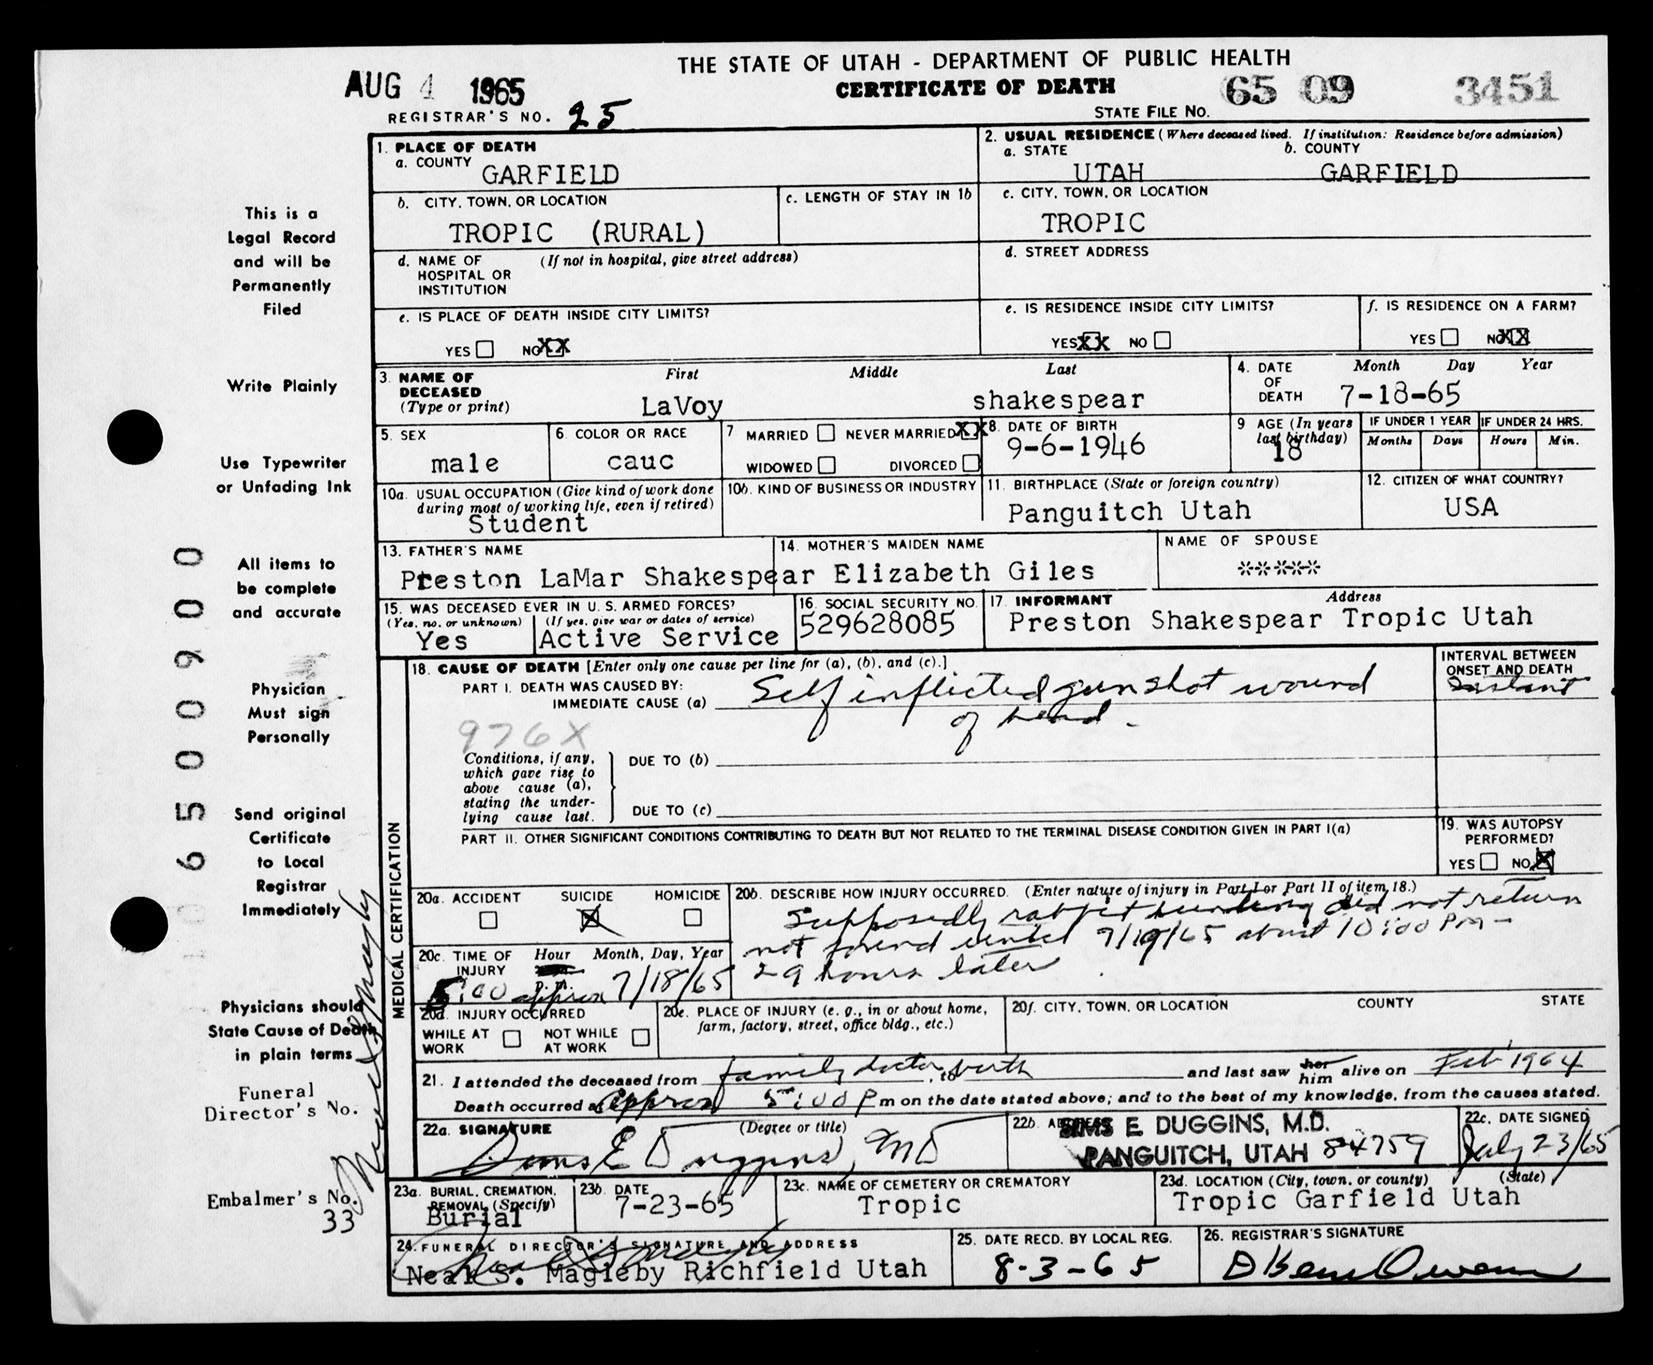 THE STATE OF UTAH - DEPARTMENT OF PUBLIC HEALTH
AUG 4 1965 CERTIFICATE OF DEATH 65 09 3451
REGISTRAR'S NO. 25 STATE FILE NO.
1. PLACE OF DEATH
a. COUNTY
GARFIELD
2. USUAL RESIDENCE (Where deceased lived. If institution: Residence before admission)
a. STATE b. COUNTY
UTAH GARFIELD
b. CITY, TOWN, OR LOCATION
TROPIC (RURAL)
c. LENGTH OF STAY IN 1b
c. CITY, TOWN, OR LOCATION
TROPIC
d. NAME OF HOSPITAL OR INSTITUTION (If not in hospital, give street address)
d. STREET ADDRESS
e. IS PLACE OF DEATH INSIDE CITY LIMITS?
YES NO XX
e. IS RESIDENCE INSIDE CITY LIMITS?
YES XX NO
f. IS RESIDENCE ON A FARM?
YES NO XX
3. NAME OF DECEASED (Type or print)
First Middle Last
LaVoy shakespear
4. DATE OF DEATH
Month Day Year
7-18-65
5. SEX
male
6 COLOR OR RACE
cauc
7 MARRIED NEVER MARRIED XX
WIDOWED DIVORCED
8. DATE OF BIRTH
9-6-1946
9 AGE (In years last birthday)
18
IF UNDER 1 YEAR
Months Days
IF UNDER 24 HRS.
Hours Min.
10a. USUAL OCCUPATION (Give kind of work done during most of working life, even if retired)
Student
10b. KIND OF BUSINESS OR INDUSTRY
11. BIRTHPLACE (State or foreign country)
Panguitch Utah
12. CITIZEN OF WHAT COUNTRY?
USA
13. FATHER'S NAME
Preston LaMar Shakespear
14. MOTHER'S MAIDEN NAME
Elizabeth Giles
NAME OF SPOUSE
*****
15. WAS DECEASED EVER IN U. S. ARMED FORCES?
(Yes, no, or unknown) (If yes, give war or dates of service)
Yes Active Service
16. SOCIAL SECURITY NO.
529628085
17. INFORMANT Address
Preston Shakespear Tropic Utah
18. CAUSE OF DEATH [Enter only one cause per line for (a), (b), and (c).]
PART I. DEATH WAS CAUSED BY:
IMMEDIATE CAUSE (a) Self inflicted gun shot wound
of head.
INTERVAL BETWEEN ONSET AND DEATH
Instant
976X
Conditions, if any, which gave rise to above cause (a), stating the underlying cause last.
DUE TO (b)
DUE TO (c)
PART II. OTHER SIGNIFICANT CONDITIONS CONTRIBUTING TO DEATH BUT NOT RELATED TO THE TERMINAL DISEASE CONDITION GIVEN IN PART I(a)
19. WAS AUTOPSY PERFORMED?
YES NO X
20a. ACCIDENT SUICIDE HOMICIDE
X
20b. DESCRIBE HOW INJURY OCCURRED. (Enter nature of injury in Part I or Part II of item 18.)
Supposedly rabbit hunting did not return
not found until 7/19/65 about 10:00 Pm -
29 hours later.
20c. TIME OF INJURY
Hour Month, Day, Year
5:00 approx 7/18/65
20d. INJURY OCCURRED
WHILE AT WORK NOT WHILE AT WORK
20e. PLACE OF INJURY (e. g., in or about home, farm, factory, street, office bldg., etc.)
20f. CITY, TOWN, OR LOCATION COUNTY STATE
21. I attended the deceased from family doctor, to birth and last saw her him alive on Feb 1964
Death occurred at approx 5:00 P m on the date stated above; and to the best of my knowledge, from the causes stated.
22a. SIGNATURE (Degree or title)
Sims E Duggins, MD
22b. ADDRESS
SIMS E. DUGGINS, M.D.
PANGUITCH, UTAH 84759
22c. DATE SIGNED
July 23/65
23a. BURIAL, CREMATION, REMOVAL (Specify)
Burial
23b. DATE
7-23-65
23c. NAME OF CEMETERY OR CREMATORY
Tropic
23d. LOCATION (City, town, or county) (State)
Tropic Garfield Utah
24. FUNERAL DIRECTOR'S SIGNATURE AND ADDRESS
Neal S. Magleby Richfield Utah
25. DATE RECD. BY LOCAL REG.
8-3-65
26. REGISTRAR'S SIGNATURE
MEDICAL CERTIFICATION
This is a
Legal Record
and will be
Permanently
Filed
Write Plainly
Use Typewriter
or Unfading Ink
All items to
be complete
and accurate
Physician
Must sign
Personally
Send original
Certificate
to Local
Registrar
Immediately
Physicians should
State Cause of Death
in plain terms
Funeral
Director's No.
Embalmer's No.
33
Neal S Magleby
6500900